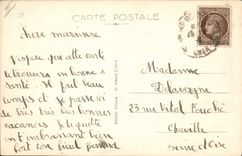 CARTE POSTALE
Chère marraine
J'espère que cette carte
te trouvera en bonne
santé. Il fait beau
temps et je passe ici
de très très très bonnes
vacances. Je te quitte
en t'embrassant bien
fort ton filleul
Madame
Delavergne
23 rue Vital Foucher
Chaville
Seine et Oise